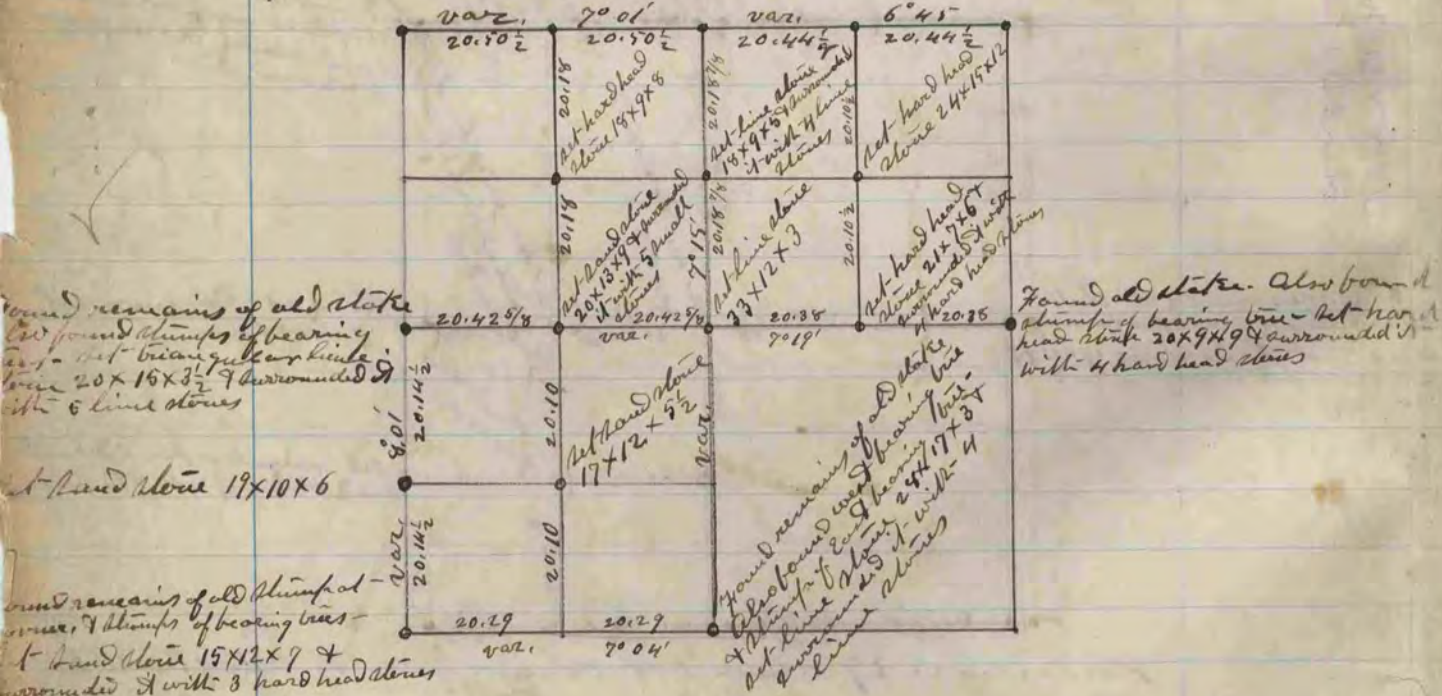 var. 7° 01' var. 6° 45
20.50½ 20.50½ 20.44½ 20.44½
20.18
set hard head
stone 18×9×8
20.18⅞
set lime stone
18×9×5 & surrounded
it with 4 lime
stones
20.10½
set hard head
stone 24×15×12
20.18
set sand stone
20×13×9 & surrounded
it with 5 small
stones
7° 15'
20.18⅞
set lime stone
33×12×3
20.10½
set hard head
stone 21×7×6 &
surrounded it with
4 hard head stones
found remains of old stake
found stumps of bearing
set triangular lime
20×15×3½ & surrounded it
with lime stones
20.42⅝ 20.42⅝ 20.38 20.35
var. 7° 19'
Found old stake. Also found
stump of bearing tree - set hard
head stone 20×9×9 & surrounded it
with 4 hard head stones
8° 01'
20.14½
20.10
set sand stone
17×12×5½
var.
Found remains of old stake
Also found west bearing tree
& stump of East bearing tree -
set lime stone 24×17×3 &
surrounded it with 4
lime stones
set sand stone 19×10×6
var.
20.14½
20.10
found remains of old stump at
corner, & stumps of bearing trees -
set sand stone 15×12×7 &
surrounded it with 3 hard head stones
20.29 20.29
var. 7° 04'